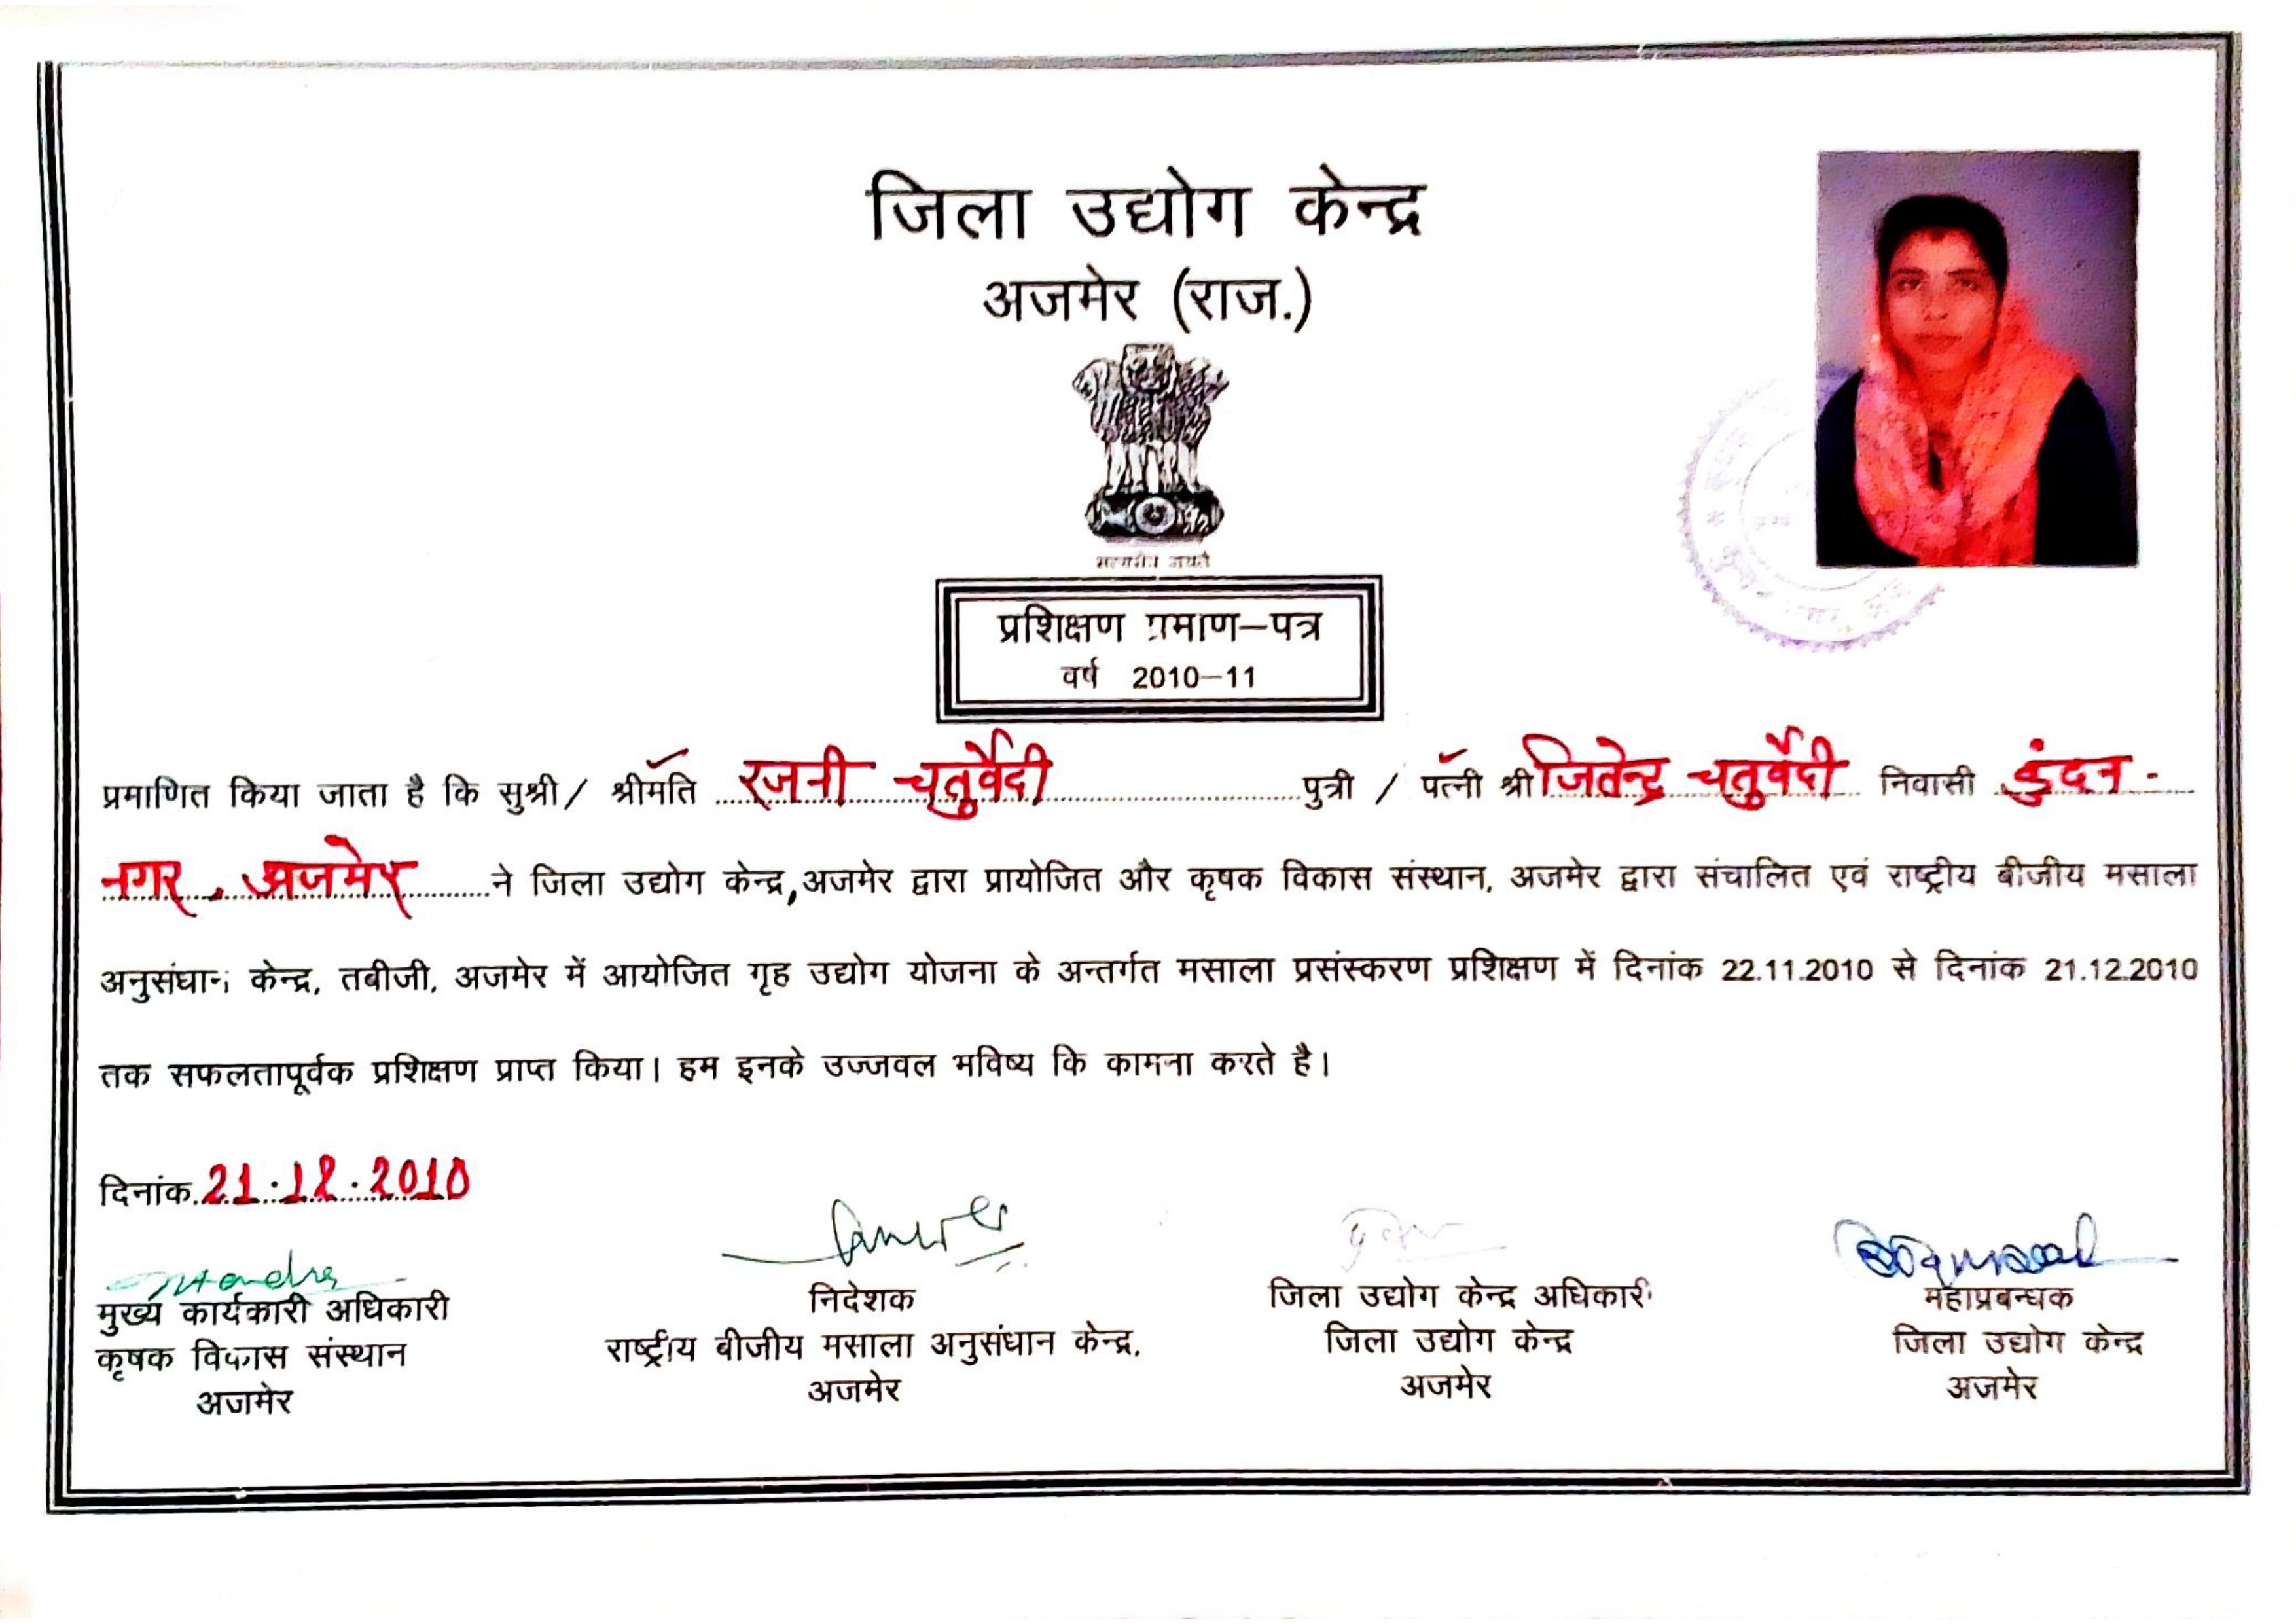 जिला उद्योग केन्द्र
अजमेर (राज.)
सत्यमेव जयते
प्रशिक्षण प्रमाण–पत्र
वर्ष 2010–11
प्रमाणित किया जाता है कि सुश्री / श्रीमति रजनी चतुर्वेदी पुत्री / पत्नी श्री जितेन्द्र चतुर्वेदी निवासी कुंदन-
नगर, अजमेर ने जिला उद्योग केन्द्र, अजमेर द्वारा प्रायोजित और कृषक विकास संस्थान, अजमेर द्वारा संचालित एवं राष्ट्रीय बीजीय मसाला
अनुसंधान केन्द्र, तबीजी, अजमेर में आयोजित गृह उद्योग योजना के अन्तर्गत मसाला प्रसंस्करण प्रशिक्षण में दिनांक 22.11.2010 से दिनांक 21.12.2010
तक सफलतापूर्वक प्रशिक्षण प्राप्त किया। हम इनके उज्जवल भविष्य कि कामना करते है।
दिनांक 21.12.2010
मुख्य कार्यकारी अधिकारी
कृषक विकास संस्थान
अजमेर
निदेशक
राष्ट्रीय बीजीय मसाला अनुसंधान केन्द्र,
अजमेर
जिला उद्योग केन्द्र अधिकारी
जिला उद्योग केन्द्र
अजमेर
महाप्रबन्धक
जिला उद्योग केन्द्र
अजमेर